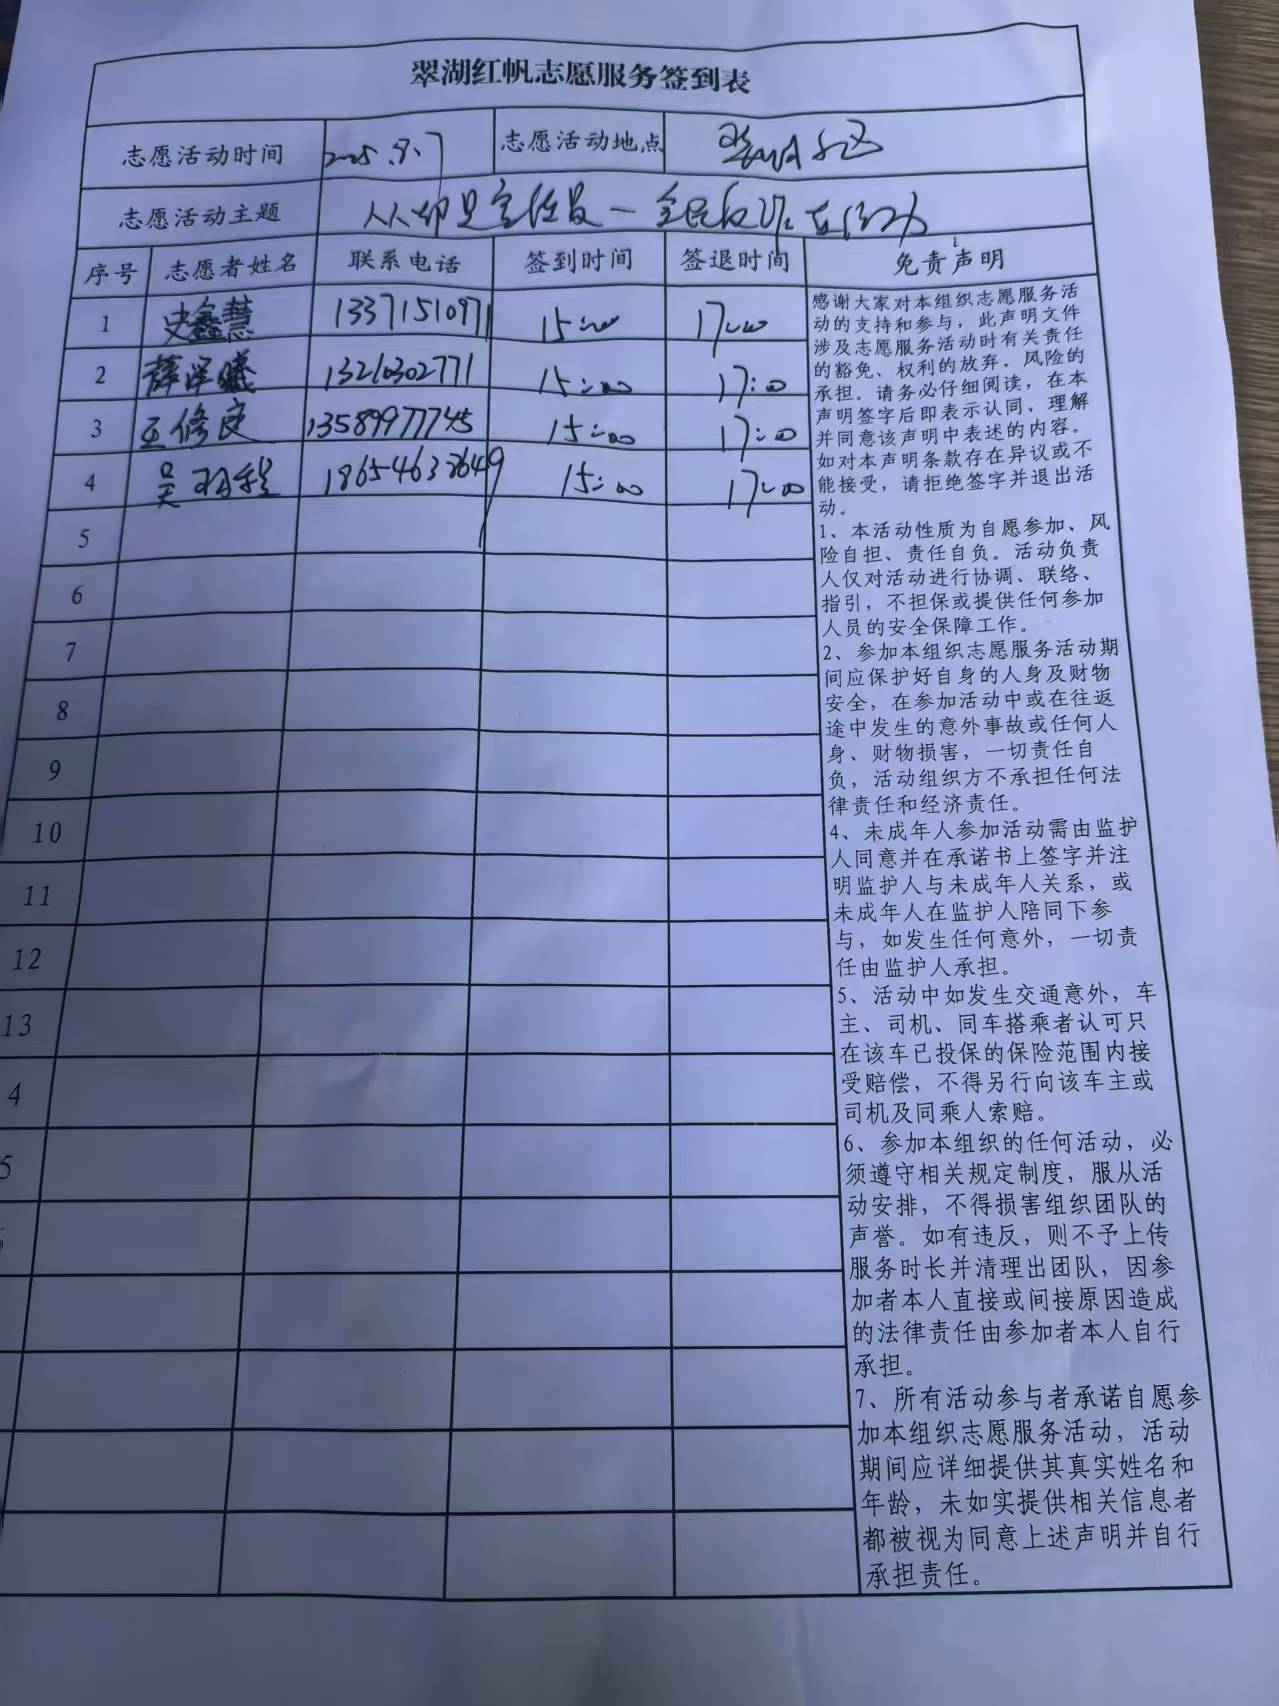 翠湖红帆志愿服务签到表
志愿活动时间 2025.8.7 志愿活动地点 翠湖小区
志愿活动主题 人人都是宣传员一全民反诈在行动
序号 志愿者姓名 联系电话 签到时间 签退时间 免责声明
1 史鑫慧 13371510971 15:00 17:00
2 薛泽曦 13210302771 15:00 17:00
3 王修廷 13589977745 15:00 17:00
4 吴 18654633649 15:00 17:00
5
6
7
8
9
10
11
12
13
4
5
感谢大家对本组织志愿服务活
动的支持和参与，此声明文件
涉及志愿服务活动时有关责任
的豁免、权利的放弃、风险的
承担。请务必仔细阅读，在本
声明签字后即表示认同、理解
并同意该声明中表述的内容。
如对本声明条款存在异议或不
能接受，请拒绝签字并退出活
动。
1、本活动性质为自愿参加、风
险自担、责任自负。活动负责
人仅对活动进行协调、联络、
指引，不担保或提供任何参加
人员的安全保障工作。
2、参加本组织志愿服务活动期
间应保护好自身的人身及财物
安全，在参加活动中或在往返
途中发生的意外事故或任何人
身、财物损害，一切责任自
负，活动组织方不承担任何法
律责任和经济责任。
4、未成年人参加活动需由监护
人同意并在承诺书上签字并注
明监护人与未成年人关系，或
未成年人在监护人陪同下参
与，如发生任何意外，一切责
任由监护人承担。
5、活动中如发生交通意外，车
主、司机、同车搭乘者认可只
在该车已投保的保险范围内接
受赔偿，不得另行向该车主或
司机及同乘人索赔。
6、参加本组织的任何活动，必
须遵守相关规定制度，服从活
动安排，不得损害组织团队的
声誉。如有违反，则不予上传
服务时长并清理出团队，因参
加者本人直接或间接原因造成
的法律责任由参加者本人自行
承担。
7、所有活动参与者承诺自愿参
加本组织志愿服务活动，活动
期间应详细提供其真实姓名和
年龄，未如实提供相关信息者
都被视为同意上述声明并自行
承担责任。